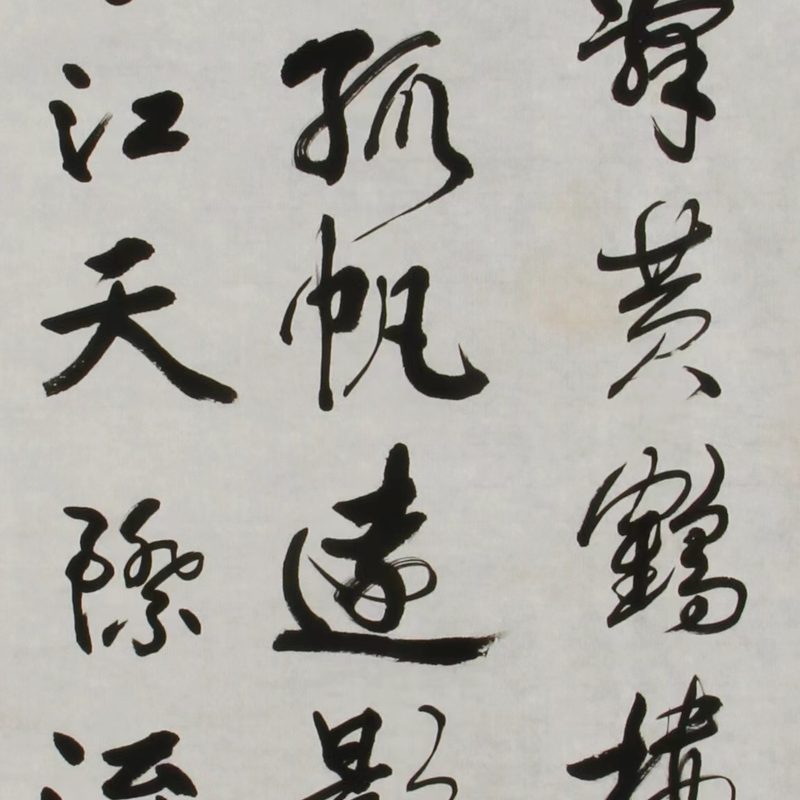 辭黃鶴樓
孤帆遠影
江天際流